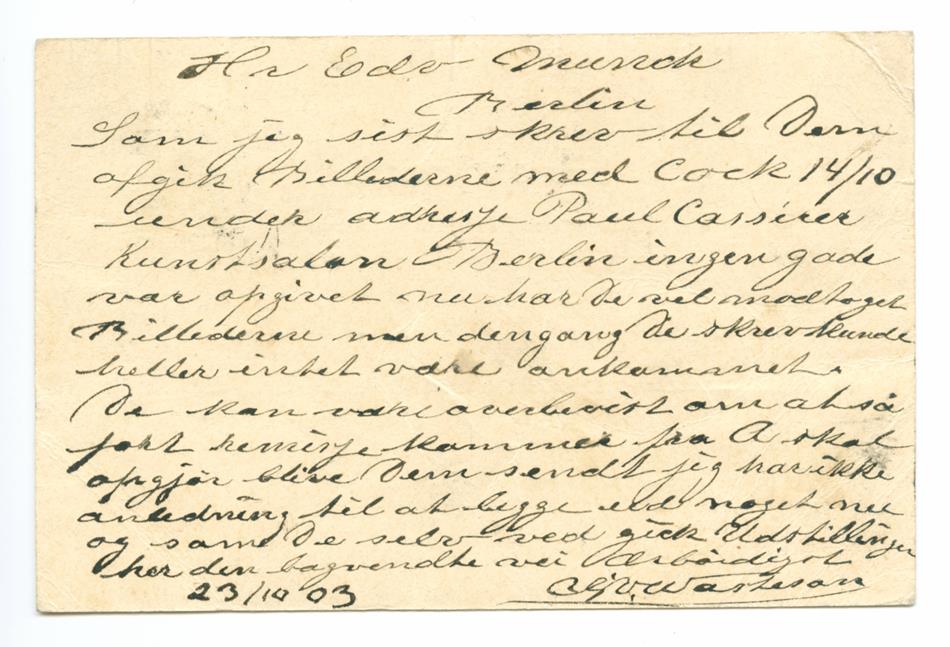 Hr Edv Munch
Berlin
Som jeg sist skrev til Dem
afgik Billederne med Cook 14/10
under adresse Paul Cassirer
Kunstsalon Berlin ingen gade
var opgivet nu har De vel modtaget
Billederne men dengang De skrev kunde
heller intet være ankommet.
De kan være overbevist om at så
fort remisse kommer fra A skal
opgjør blive Dem sendt jeg har ikke
anledning til at legge ud noget nu
og som De selv ved gick Udstillingen
her den bagvendte vei Ærbödigst
23/10 03 Wasteson